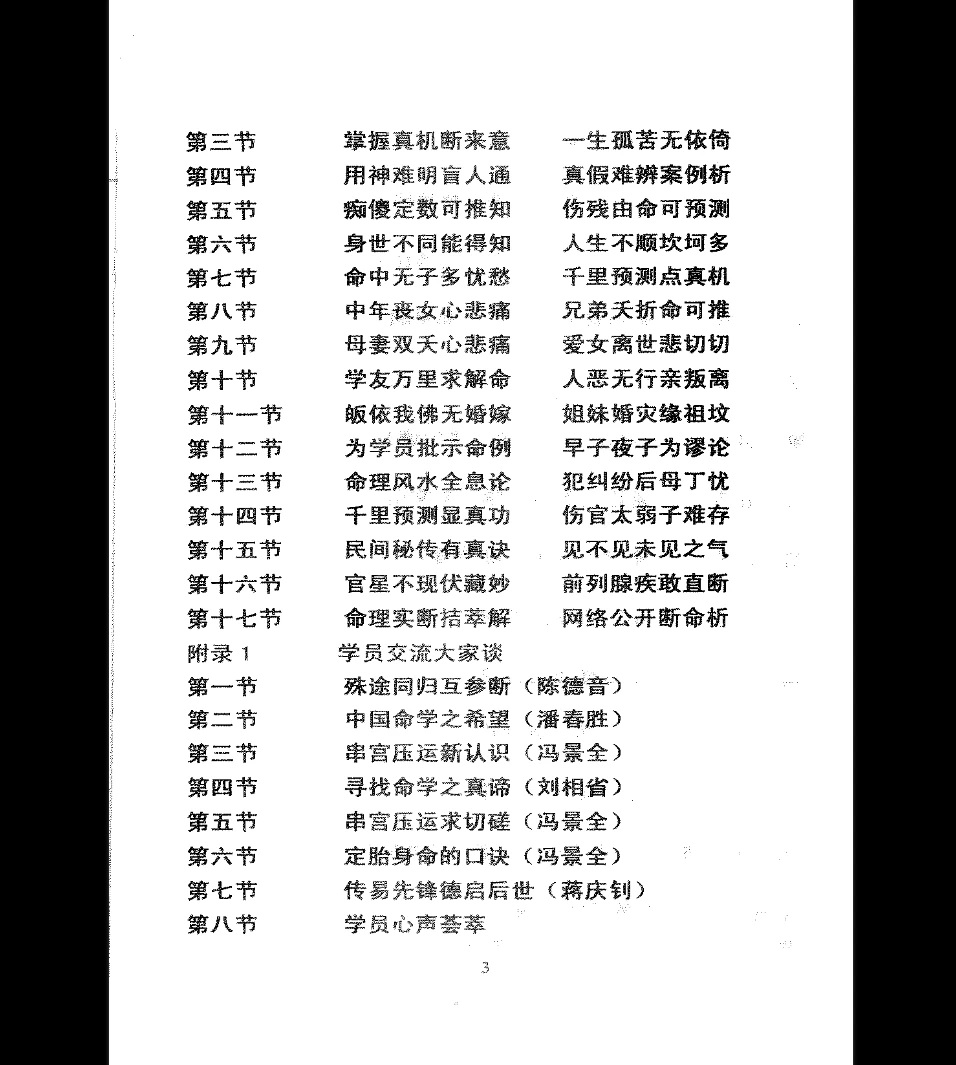 第三节 掌握真机断来意 一生孤苦无依倚
第四节 用神难明盲人通 真假难辨案例析
第五节 痴傻定数可推知 伤残由命可预测
第六节 身世不同能得知 人生不顺坎坷多
第七节 命中无子多忧愁 千里预测点真机
第八节 中年丧女心悲痛 兄弟夭折命可推
第九节 母妻双夭心悲痛 爱女离世悲切切
第十节 学友万里求解命 人恶无行亲叛离
第十一节 皈依我佛无婚嫁 姐妹婚灾缘祖坟
第十二节 为学员批示命例 早子夜子为谬论
第十三节 命理风水全息论 犯纠纷后母丁忧
第十四节 千里预测显真功 伤官太弱子难存
第十五节 民间秘传有真诀 见不见未见之气
第十六节 官星不现伏藏妙 前列腺疾敢直断
第十七节 命理实断拮萃解 网络公开断命析
附录1 学员交流大家谈
第一节 殊途同归互参断（陈德音）
第二节 中国命学之希望（潘春胜）
第三节 串宫压运新认识（冯景全）
第四节 寻找命学之真谛（刘相省）
第五节 串宫压运求切磋（冯景全）
第六节 定胎身命的口诀（冯景全）
第七节 传易先锋德启后世（蒋庆钊）
第八节 学员心声荟萃
3